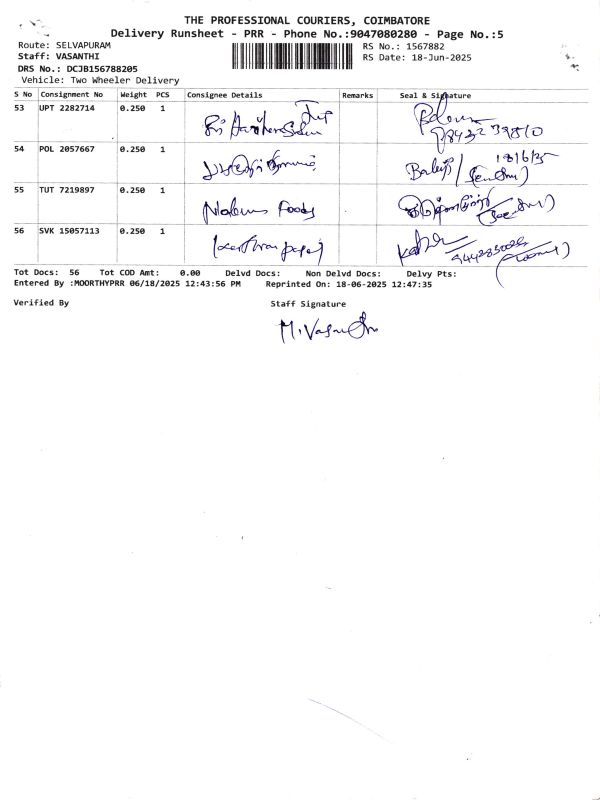 THE PROFESSIONAL COURIERS, COIMBATORE
Delivery Runsheet - PRR - Phone No.:9047080280 - Page No.:5
Route: SELVAPURAM RS No.: 1567882
Staff: VASANTHI RS Date: 18-Jun-2025
DRS No.: DCJB156788205
Vehicle: Two Wheeler Delivery
S No Consignment No Weight PCS Consignee Details Remarks Seal & Signature
53 UPT 2282714 0.250 1
54 POL 2057667 0.250 1 18/6/25
55 TUT 7219897 0.250 1 Foods
56 SVK 15057113 0.250 1
Tot Docs: 56 Tot COD Amt: 0.00 Delvd Docs: Non Delvd Docs: Delvy Pts:
Entered By :MOORTHYPRR 06/18/2025 12:43:56 PM Reprinted On: 18-06-2025 12:47:35
Verified By Staff Signature
M. Vasanthi